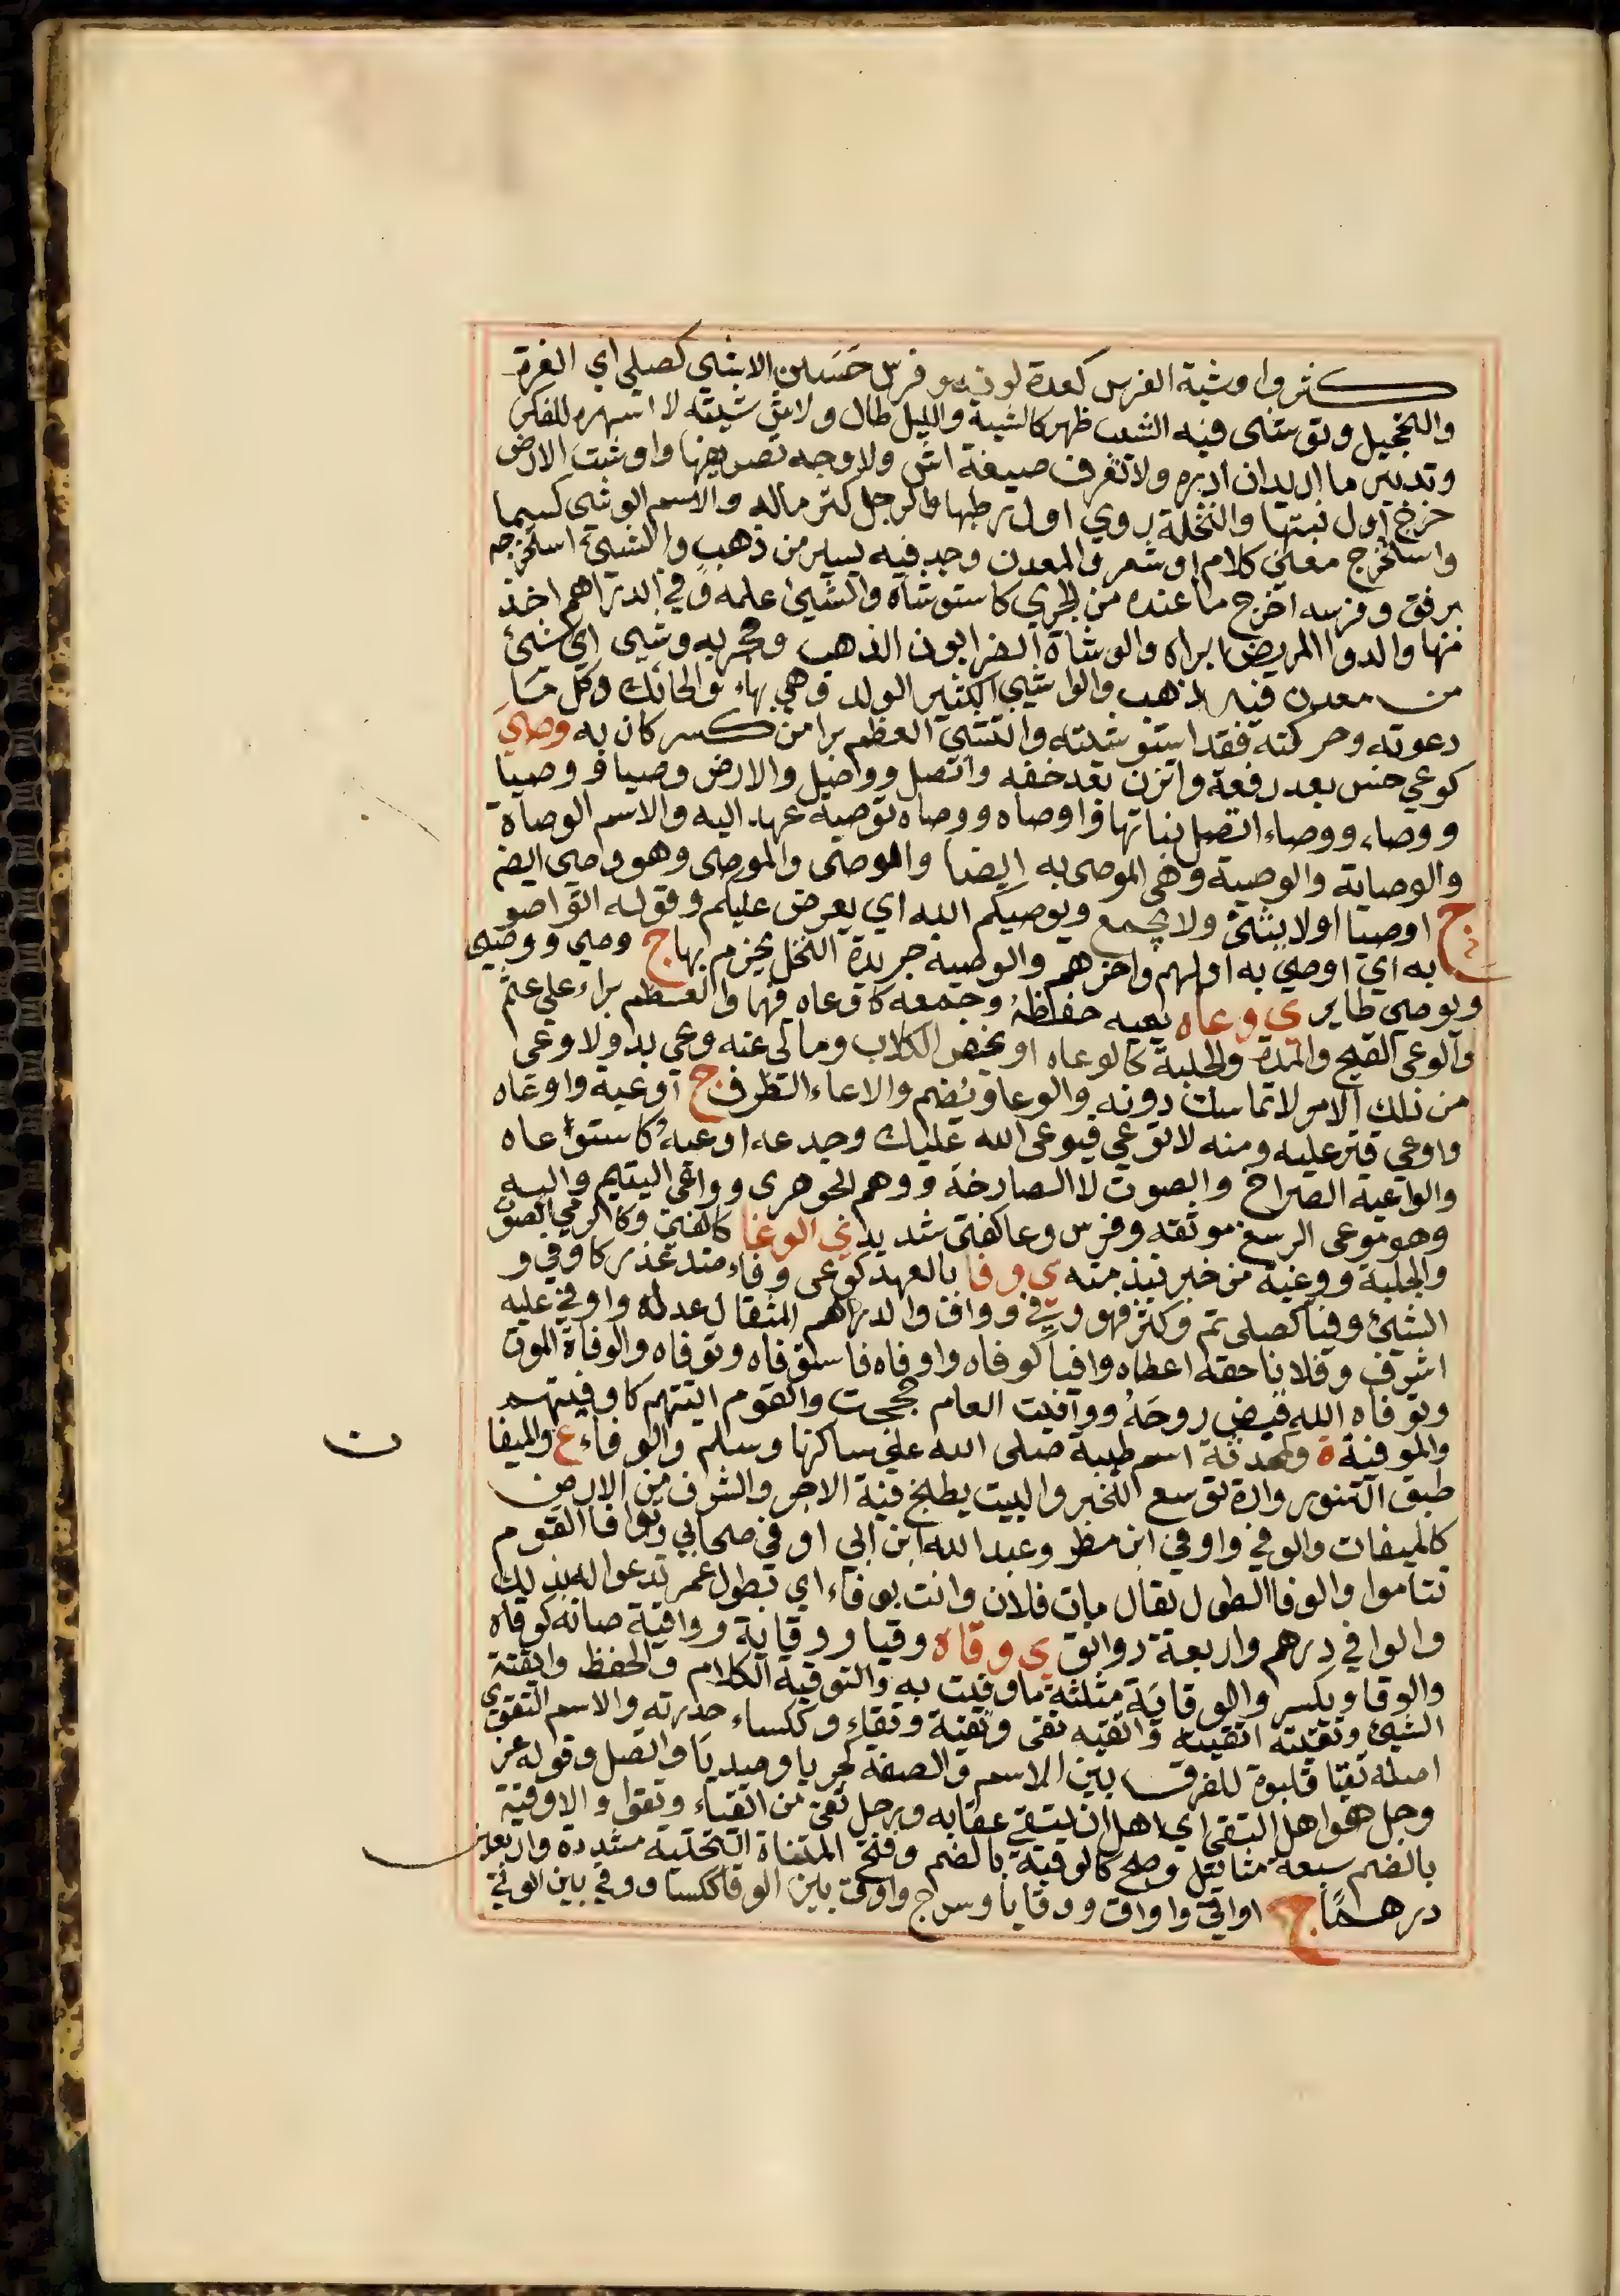 كثروا وشية الفرس كعدة لونه وفرس حسن الاشي كصلي اي الغرة
والتحجيل وتوشى فيه الشيب ظهر كالشية والليل طال ولا اش شيته لا اسهره للفكر
وتدبير ما اريد ان ادبره ولا تعرف صيغة اش ولا وجه تصريفها واوشت الارض
خرج اول نبتها والنخلة روي اول رطبها والرجل كثر ماله والاسم الوشي كسيما
واستخرج معنى كلام او شعر والمعدن وجد فيه يسير من ذهب والشيئ استخرجه
برفق وفرسه اخرج ما عنده من الجري كاستوشاه والشيئ علمه وفي الدراهم اخذ
منها والدوا المريض ابراه والوشاة الضرابون الذهب وحجر به وشي اي شيئ
من معدن فيه ذهب والواشي الكثير الولد وهي بهاء والحائك وكل ما
دعوته وحركته فقد استوشيته وائتشي العظم برا من كسر كان به وصي
كوعي خس بعد رفعة واتزن بعد خفة واتصل ووصل والارض وصيا ووصيا
ووصاء ووصاء اتصل نباتها واوصاه ووصاه توصية عهد اليه والاسم الوصاة
والوصاية والوصية وهي الموصى به ايضا والموصى والموصي وهو وصي ايضا
ج اوصيا اولا يثنى ولا يجمع ويوصيكم الله اي يفرض عليكم وقوله اتواصو
به اي اوصى به اولهم واخرهم والوصية جريدة النخل يحزم بها ج وصي ووصي
ويوصي طاير ي وعاه يعيه حفظه وجمعه كاوعاه فيهما والعظم براء على عثم
والوعي القيح والمدة والجلبة كالوعاه او يخص الكلاب وما لى عنه وعي بد ولا وعي
من ذلك الامر لا تماسك دونه والوعا ويضم والاعاء الظرف ج اوعية واوعاه
واوعي قتر عليه ومنه لا توعي فيوعي الله عليك وجدعه اوعبه كاستوعاه
والواعية الصراخ والصوت لا الصارخة ووهم الجوهري ووعي اليتيم واليه
وهو موعى الرسغ موثقه وفرس وعا كفتى شديد ي الوغا كالفتى وكالرمي الصوت
والجلبة ووغية من خبر نبذ منه ي وفا بالعهد كوعي وفاء ضد غدر كاوفي و
الشيئ وفيا كصلي تم وكثر فهو وفي وواف والدرهم المثقال عدله واوفى عليه
اشرف وفلانا حقه اعطاه وافيا كوفاه واوفاه فاستوفاه وتوفاه والوفاة الموت
وتوفاه الله قبض روحه ووافيت العام حججت والقوم اتيتهم كاوفيتهم
والموفية ة وكمحدثة اسم طيبة صلى الله على ساكنها وسلم والوفاء ع والميفا
ن
طبق التنور وارة توسع للخبز والبيت يطبخ فيه الاجر والشرف من الارض
كالميفات والوفي واوفي ابن مطر وعبد الله ابن ابي اوفى صحابي وتوافا القوم
تتاموا والوفا الطول يقال مات فلان وانت بوفاء اي بطول عمر تدعوا له بذلك
والوافي درهم واربعة دوانق ي وقاه وقيا ووقاية وواقية صانه كوقاه
والوقا ويكسر والوقاية مثلثة ما وقيت به والتوقية الكلاه والحفظ واتقيت
الشيئ وتقيته اتقيه واتقيه تقى وتقية وتقاء وككساء حذرته والاسم التقوى
اصله تقيا قلبوه للفرق بين الاسم والصفة كخزيا وصديا واتصل وقوله عز
وجل هو اهل التقى اي اهل ان يتقى عقابه ورجل تقي من اتقياء وتقوا والاوقية
بالضم سبعة مثاقيل وصح كالوقية بالضم وفتح المثناة التحتية مشددة واربعون
درهما ج اواقي واواق ووقايا وسرج واق بين الوقا ككسا ووقي بين الوقي